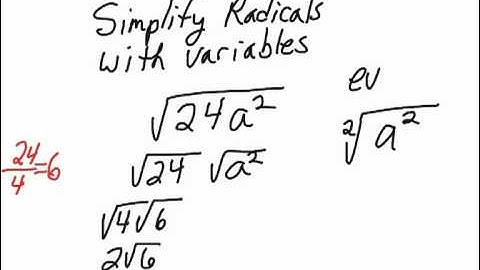 Simplify Radicals
with variables
ev
√24a²
²√a²
√24 √a²
24/4=6
√4√6
2√6